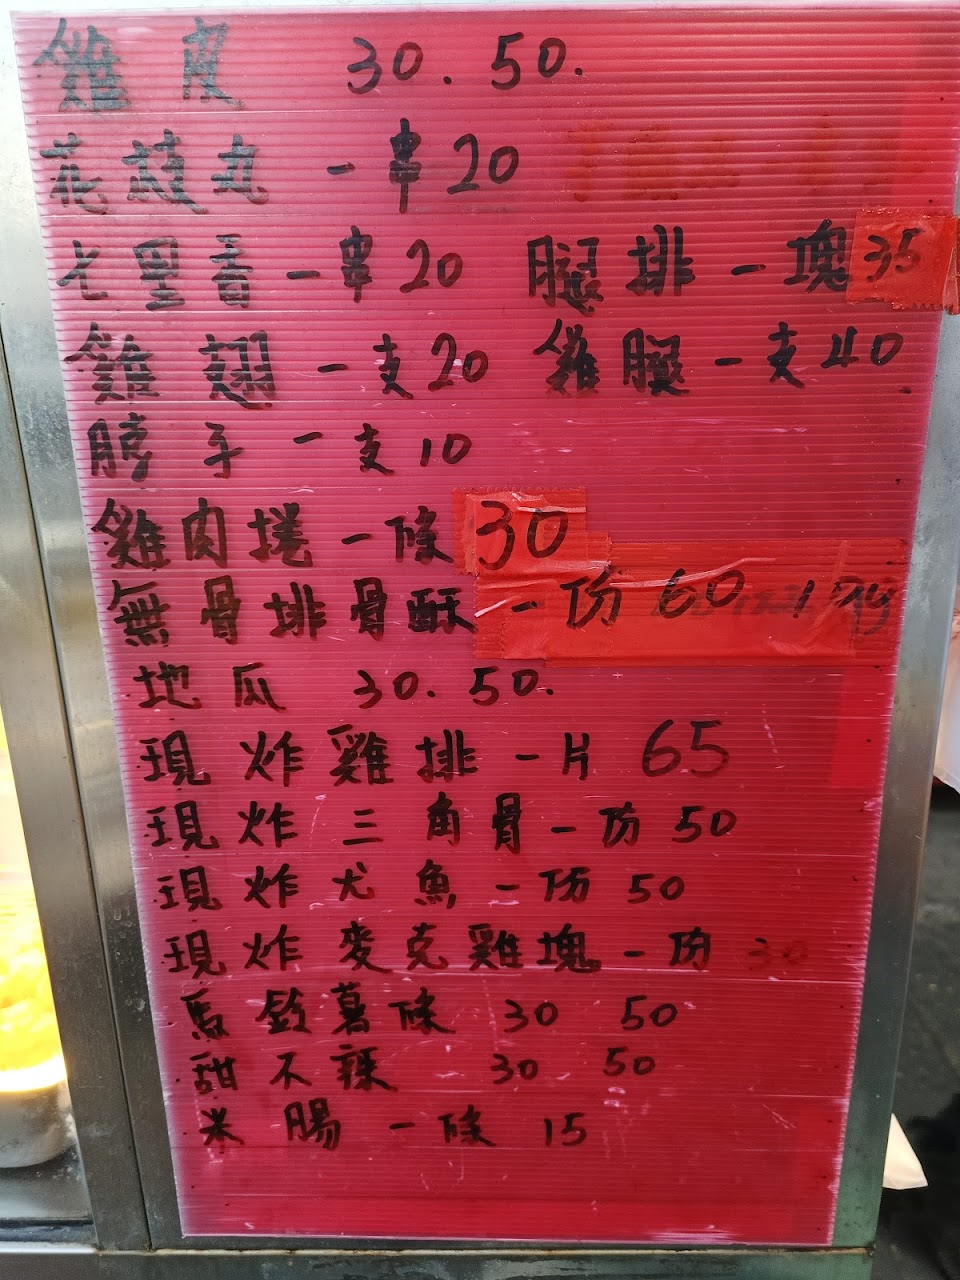 雞皮 30. 50.
花枝丸 一串20
七里香 一串20 腿排 一塊35
雞翅 一支20 雞腿 一支40
脖子 一支10
雞肉捲 一條30
無骨排骨酥 一份60
地瓜 30. 50.
現炸雞排 一片 65
現炸三角骨 一份 50
現炸尤魚 一份 50
現炸麥克雞塊 一份 30
馬鈴薯條 30 50
甜不辣 30 50
米腸 一條 15